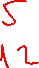 5
12